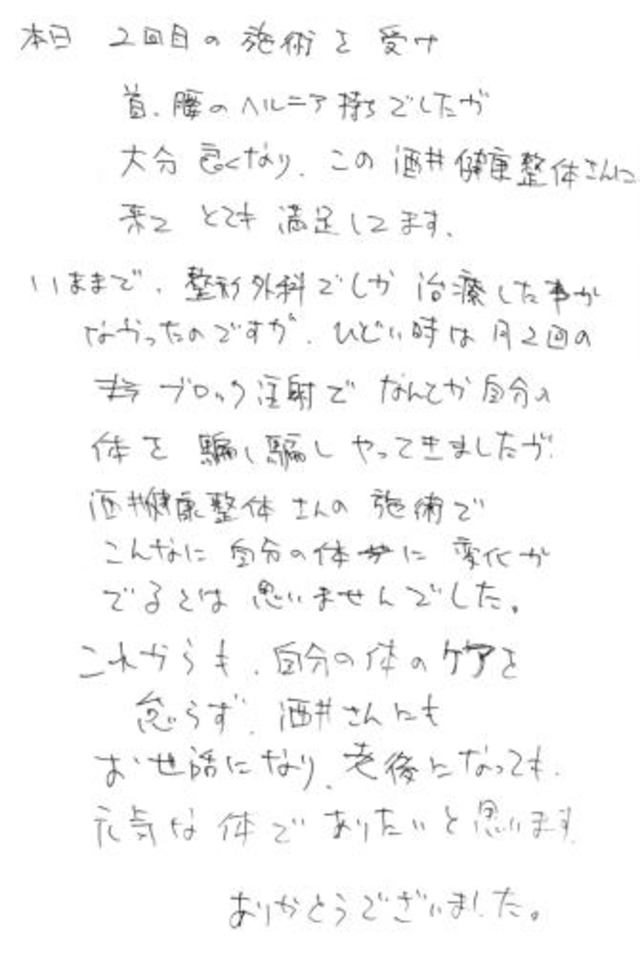 本日 2回目の施術を受け
首、腰のヘルニア持ちでしたが
大分良くなり、この酒井健康整体さんに
来て とても満足してます。
いままで、整形外科でしか治療した事が
なかったのですが、ひどい時は月2回の
ブロック注射でなんとか自分の
体を騙し騙しやってきましたが
酒井健康整体さんの施術で
こんなに自分の体に変化が
でるとは思いませんでした。
これからも、自分の体のケアを
怠らず、酒井さんにも
お世話になり、老後になっても、
元気な体でありたいと思います
ありがとうございました。